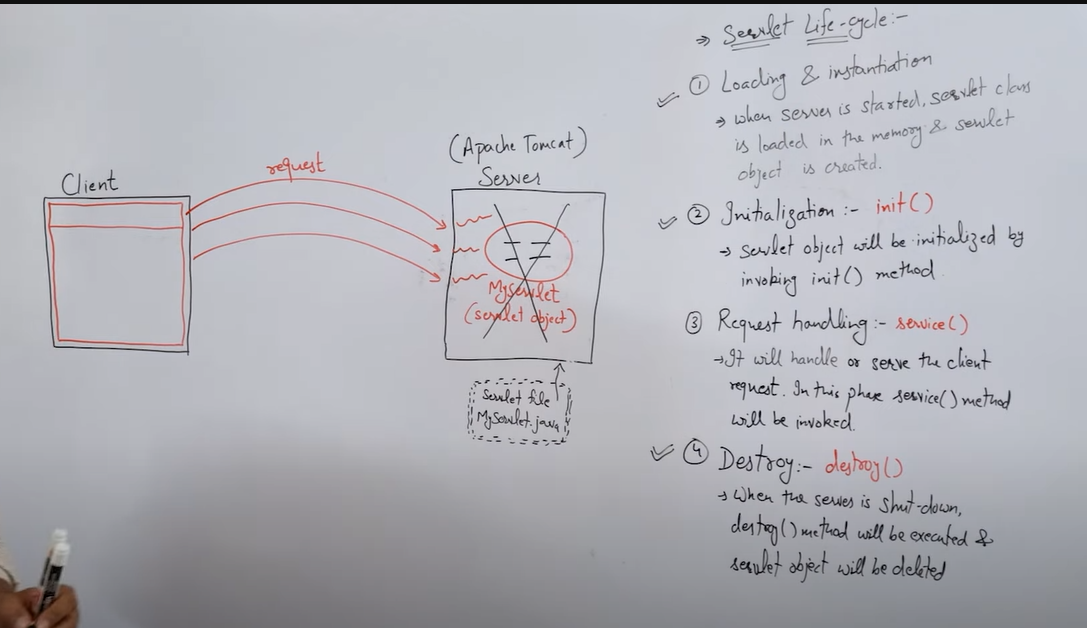 Client
request
(Apache Tomcat)
Server
MyServlet
(servlet object)
Servlet file
MyServlet.java
⇒ Servlet Life-cycle:-
① Loading & instantiation
⇒ when server is started, servlet class
is loaded in the memory & servlet
object is created.
② Initialization :- init()
→ servlet object will be initialized by
invoking init() method.
③ Request handling :- service()
→ It will handle or serve the client
request. In this phase service() method
will be invoked.
④ Destroy:- destroy()
→ When the server is shut-down,
destroy() method will be executed &
servlet object will be deleted